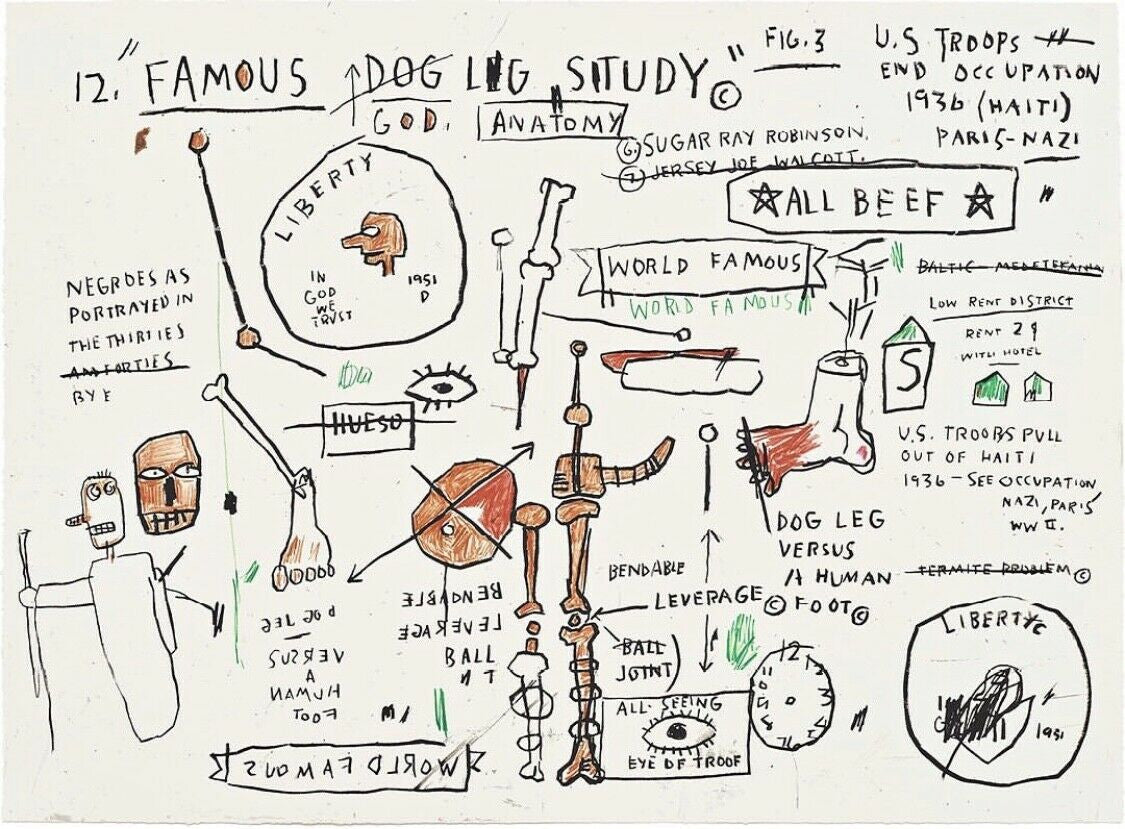 12. "FAMOUS DOG LEG STUDY" ©
GOD.
ANATOMY
FIG. 3
U.S TROOPS
END OCCUPATION
1936 (HAITI)
PARIS-NAZI
6. SUGAR RAY ROBINSON.
7. JERSEY JOE WALCOTT.
ALL BEEF
LIBERTY
IN
GOD
WE
TRUST
1951
D
WORLD FAMOUS
WORLD FAMOUS
NEGROES AS
PORTRAYED IN
THE THIRTIES
AM FORTIES
BY E
HUESO
LOW RENT DISTRICT
WITH HOTEL
S
U.S. TROOPS PULL
OUT OF HAITI
1936 - SEE OCCUPATION
NAZI, PARIS
WW II.
TERMITE PROBLEM ©
DOG LEG
VERSUS
A HUMAN
FOOT ©
BENDABLE
LEVERAGE ©
BALL
JOINT)
DOG LEG
VERSUS
A
HUMAN
FOOT
BENDABLE
LEVERAGE
BALL
N T
ALL·SEEING
EYE OF TROOF
12
LIBERTY
1951
WORLD FAMOUS